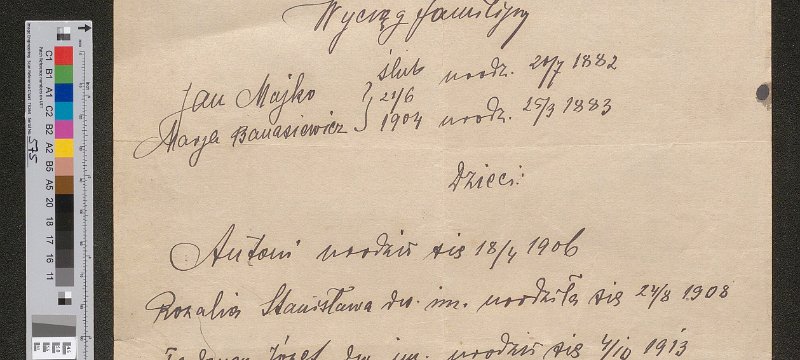 Wyciąg familijny
Jan Majko ślub 21/6 1904 urodz. 20/7 1882
Marja Banasiewicz urodz. 25/3 1883
Dzieci:
Antoni urodził się 18/4 1906
Rozalia Stanisława dw. im. urodziła się 24/8 1908
Józef dw. im. urodził się 1913
C1
B1
A1
C2
B2
A2
B5
A5
20
18
17
16
11
575